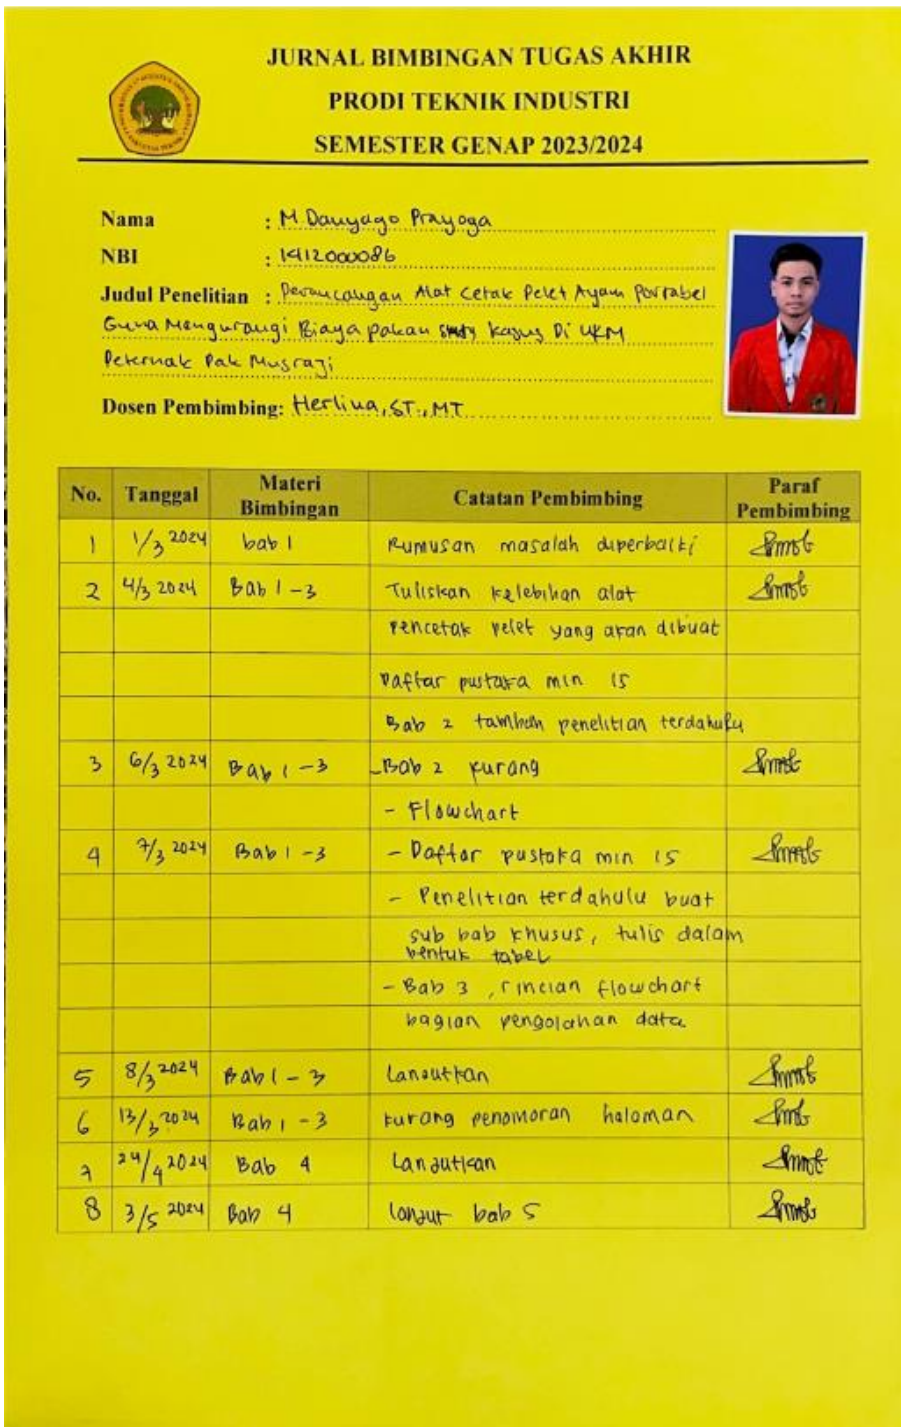 JURNAL BIMBINGAN TUGAS AKHIR
PRODI TEKNIK INDUSTRI
SEMESTER GENAP 2023/2024
Nama : M. Danyago Prayoga
NBI : 1412000086
Judul Penelitian : Perancangan Alat Cetak Pelet Ayam Portabel
Guna Mengurangi Biaya pakan study kasus Di UKM
Peternak Pak Musrazi
Dosen Pembimbing: Herlina, ST., MT
No. Tanggal Materi Bimbingan Catatan Pembimbing Paraf Pembimbing
1 1/3 2024 bab 1 Rumusan masalah diperbaiki
2 4/3 2024 Bab 1-3 Tuliskan kelebihan alat
pencetak pelet yang akan dibuat
Daftar pustaka min 15
Bab 2 tambah penelitian terdahulu
3 6/3 2024 Bab 1-3 -Bab 2 kurang
- Flowchart
4 7/3 2024 Bab 1-3 - Daftar pustaka min 15
- Penelitian terdahulu buat
sub bab khusus, tulis dalam
bentuk tabel
- Bab 3, rincian flowchart
bagian pengolahan data
5 8/3 2024 Bab 1-3 Lanjutkan
6 13/3 2024 Bab 1-3 kurang penomoran halaman
7 24/4 2024 Bab 4 Lanjutkan
8 3/5 2024 Bab 4 lanjut bab 5